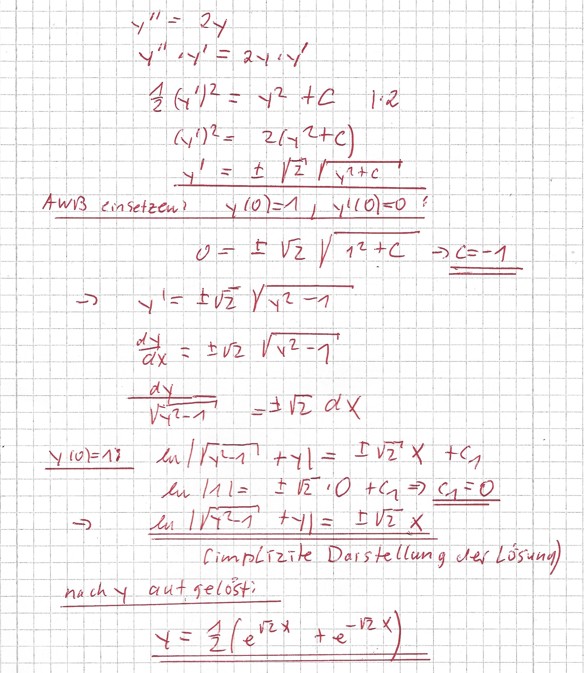 y'' = 2y
y'' · y' = 2y · y'
½ (y')² = y² + C   |·2
(y')² = 2(y² + C)
y' = ± √2 √(y² + c)
AWB einsetzen: y(0)=1, y'(0)=0 :
0 = ± √2 √(1² + C) → C = -1
→ y' = ± √2 √(y² - 1)
dy/dx = ± √2 √(y² - 1)
dy/√(y² - 1) = ± √2 dx
y(0)=1: ln|√(y² - 1) + y| = ± √2 x + C₁
ln|1| = ± √2 · 0 + C₁ ⇒ C₁ = 0
→ ln|√(y² - 1) + y| = ± √2 x
(implizite Darstellung der Lösung)
nach y aufgelöst:
y = ½ (e^(√2 x) + e^(-√2 x))